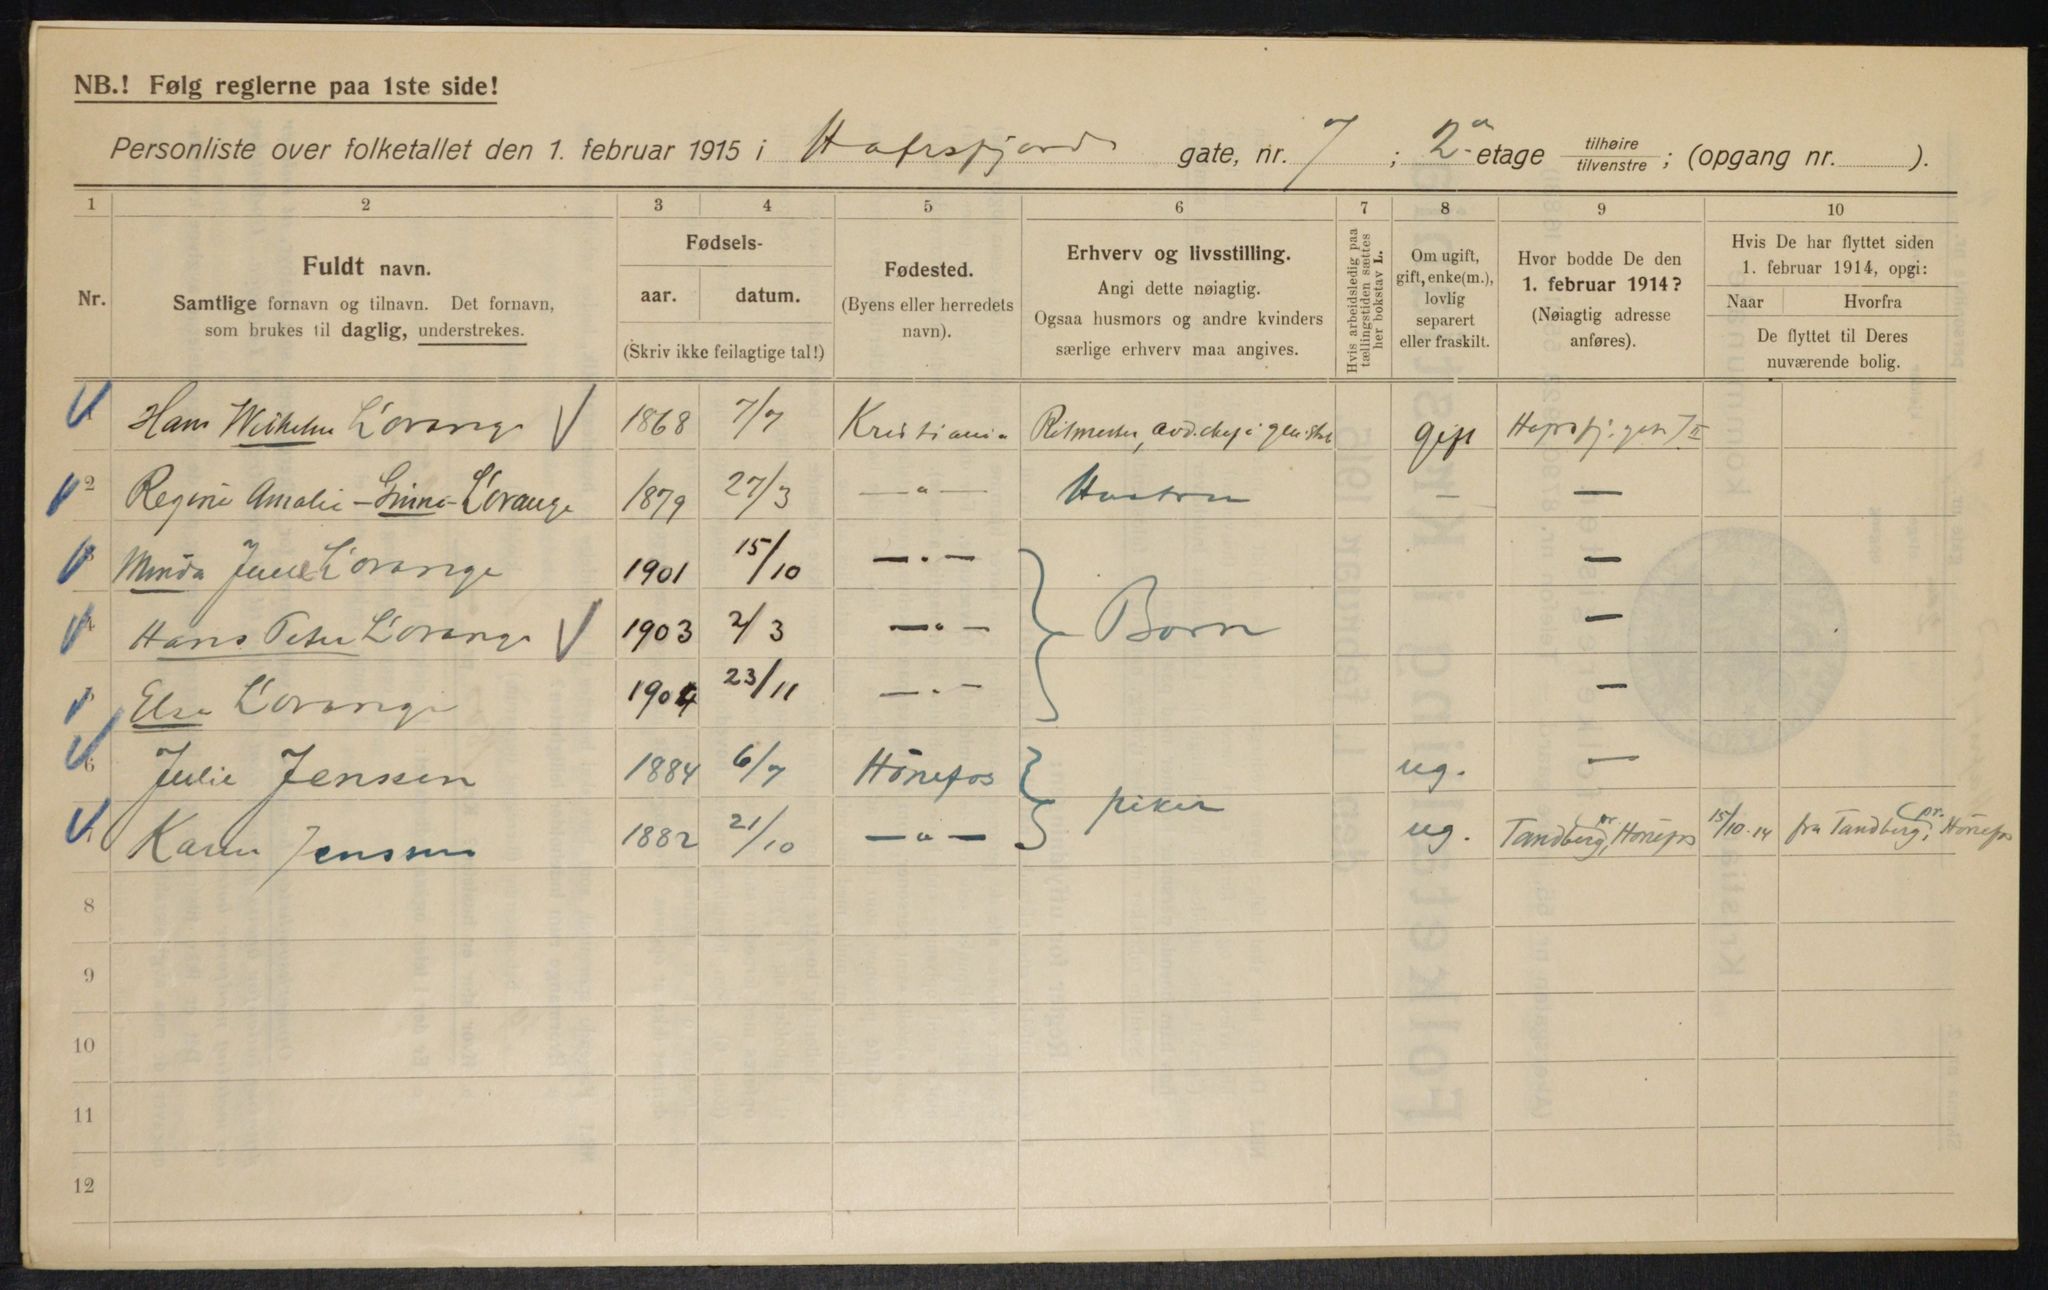 NB.! Følg reglerne paa 1ste side!
Personliste over folketallet den 1. februar 1915 i Hafrsfjords gate, nr. 7 ; 2. etage tilhøire tilvenstre ; (opgang nr. ).
1 2 3 4 5 6 7 8 9 10
Nr.
Fuldt navn.
Samtlige fornavn og tilnavn. Det fornavn,
som brukes til daglig, understrekes.
Fødsels-
aar. datum.
(Skriv ikke feilagtige tal!)
Fødested.
(Byens eller herredets
navn).
Erhverv og livsstilling.
Angi dette nøiagtig.
Ogsaa husmors og andre kvinders
særlige erhverv maa angives.
Hvis arbeidsledig paa
tællingstiden sættes
her bokstav L.
Om ugift,
gift, enke(m.),
lovlig
separert
eller fraskilt.
Hvor bodde De den
1. februar 1914?
(Nøiagtig adresse
anføres).
Hvis De har flyttet siden
1. februar 1914, opgi:
Naar Hvorfra
De flyttet til Deres
nuværende bolig.
1 Hans Wilhelm L'orange 1868 7/7 Kristiania Ritmester, avd.chef i gift Hafrsfj. gate 7 II
2 Regine Amalie L'orange 1879 27/3 — " — Hustru — —
3 Minda Julie L'orange 1901 15/10 — " — —
4 Hans Peter L'orange 1903 2/3 — " — Børn —
5 Else L'orange 1904 23/11 — " — —
6 Julie Jenssen 1884 6/7 Hönefos ug. —
7 Karen Jenssen 1882 21/10 — " — piker ug. Tandberg, pr. Hönefos 15/10-14 fra Tandberg, pr. Hönefos
8
9
10
11
12